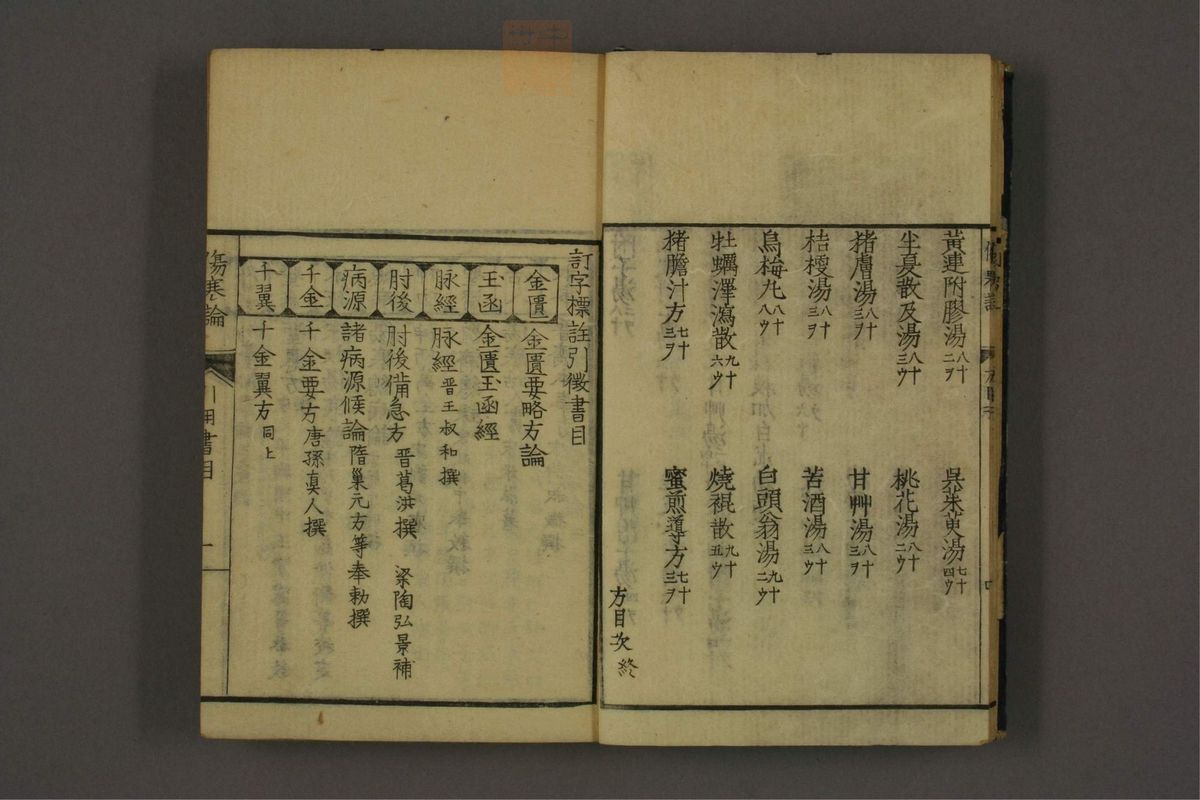 黃連附膠湯 八十二ヲ 吳茱萸湯 七十四ウ
半夏散及湯 八十三ウ 桃花湯 八十二ウ
猪膚湯 八十三ヲ 甘艸湯 八十三ヲ
桔梗湯 八十三ヲ 苦酒湯 八十三ウ
烏梅丸 八十八ウ 白頭翁湯 九十二ウ
牡蠣澤瀉散 九十六ウ 燒裩散 九十五ウ
猪膽汁方 七十三ヲ 蜜煎導方 七十三ヲ
方目次 終
訂字標註引徵書目
金匱 金匱要略方論
玉函 金匱玉函經
脉經 脉經 晋王叔和撰
肘後 肘後備急方 晋葛洪撰 梁陶弘景補
病源 諸病源候論 隋巢元方等奉勅撰
千金 千金要方 唐孫真人撰
千翼 千金翼方 同上
傷寒論 引用書目 一